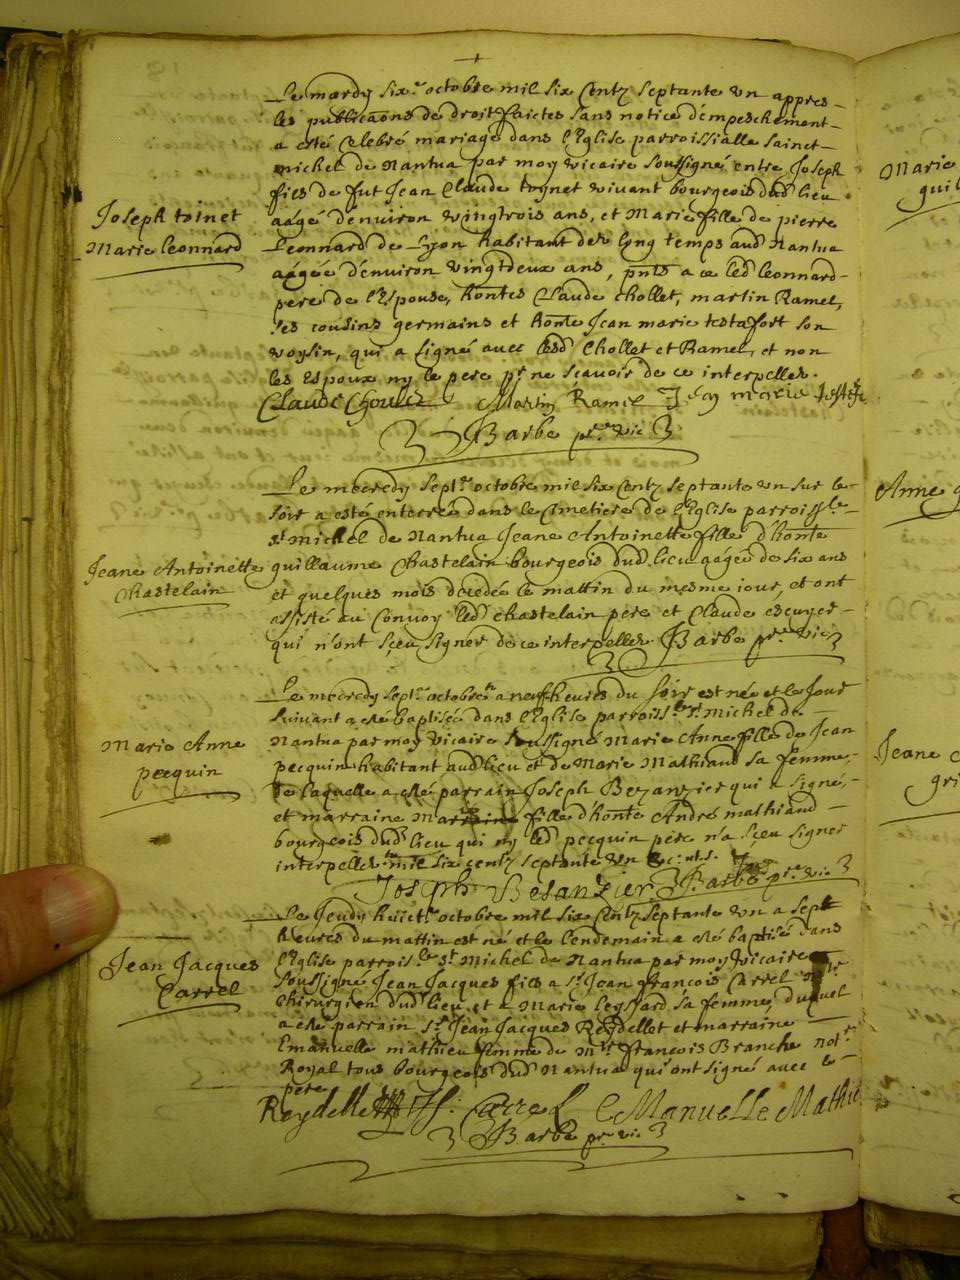 Le mardy six.e octobre mil six Centz septante un appres
les publicaons de droit faictes sans notice d'empeschement
a esté Celebré mariage dans l'Eglise parroissialle sainct
michel de Nantua par moy vicaire soussigné entre Joseph
fils de fut Jean Claude toynet vivant bourgeois dud. lieu
Joseph toinet
Marie leonnard
aagé d'environ vingtrois ans, et Marie fille de pierre
Leonnard de Lyon habitant des long temps aud. Nantua
aagée d'environ vingtdeux ans, pnts a ce led. leonnard
pere de l'Espouse, hontes Claude Chollet, martin Ramel,
ses cousins germains et honte Jean marie testafort son
voysin, qui a signé avec lesd. Chollet et Ramel, et non
les Espoux ny le pere pr. ne scavoir de ce interpelles.
Claude Chollet Martin Ramel Jean marie
Barbe pr.e vic.
Le mecredy sept.e octobre mil six Centz septante un sur le
soir a esté enterrée dans le Cimetiere de l'Eglise parroiss.le
st. michel de Nantua Jeane Antoinette fille d'honte
Jeane Antoinette
Chastelain
guillaume Chastelain bourgeois dud. lieu aagée de six ans
et quelques mois decedée le mattin du mesme jour, et ont
assisté au Convoy led. Chastelain pere et Claude escuyer
qui n'ont sçeu signer de ce interpelles Barbe pr.e vic.
Le mecredy sept.e octobre a neuf heures du soir est née et le Jour
suivant a esté baptisée dans l'Eglise parroiss.le st. Michel de
Marie Anne
pecquin
Nantua par moy vicaire soussigné Marie Anne fille de Jean
pecquin habitant aud. lieu et de Marie Mathiaud sa femme,
de laquelle a esté parrain Joseph Besansier qui a signé,
et marraine fille d'honte André mathiaud
bourgeois dud. lieu qui ny led. pecquin pere n'a sçeu signer
interpelles mil six centz septante un
Joseph Besansier Barbe pr.e vic.
Le Jeudy huict.e octobre mil six Centz septante un a sept
heures du mattin est né et le lendemain a esté baptisé dans
Jean Jacques
Carrel
l'Eglise parrois.le st. Michel de Nantua par moy vicaire
soussigné Jean Jacques fils a sr. Jean françois Carrel
Chirurgien dud. lieu, et a Marie sa femme, duquel
a esté parrain sr. Jean Jacques Reydellet et marraine
Emanuelle mathieu femme de Mre françois Branche not.e
Royal tous bourgeois dud. Nantua qui ont signé avec le
pere
Reydellet Carrel E Manuelle Mathieu
Barbe pr.e vic.
Marie
Anne
Jeane